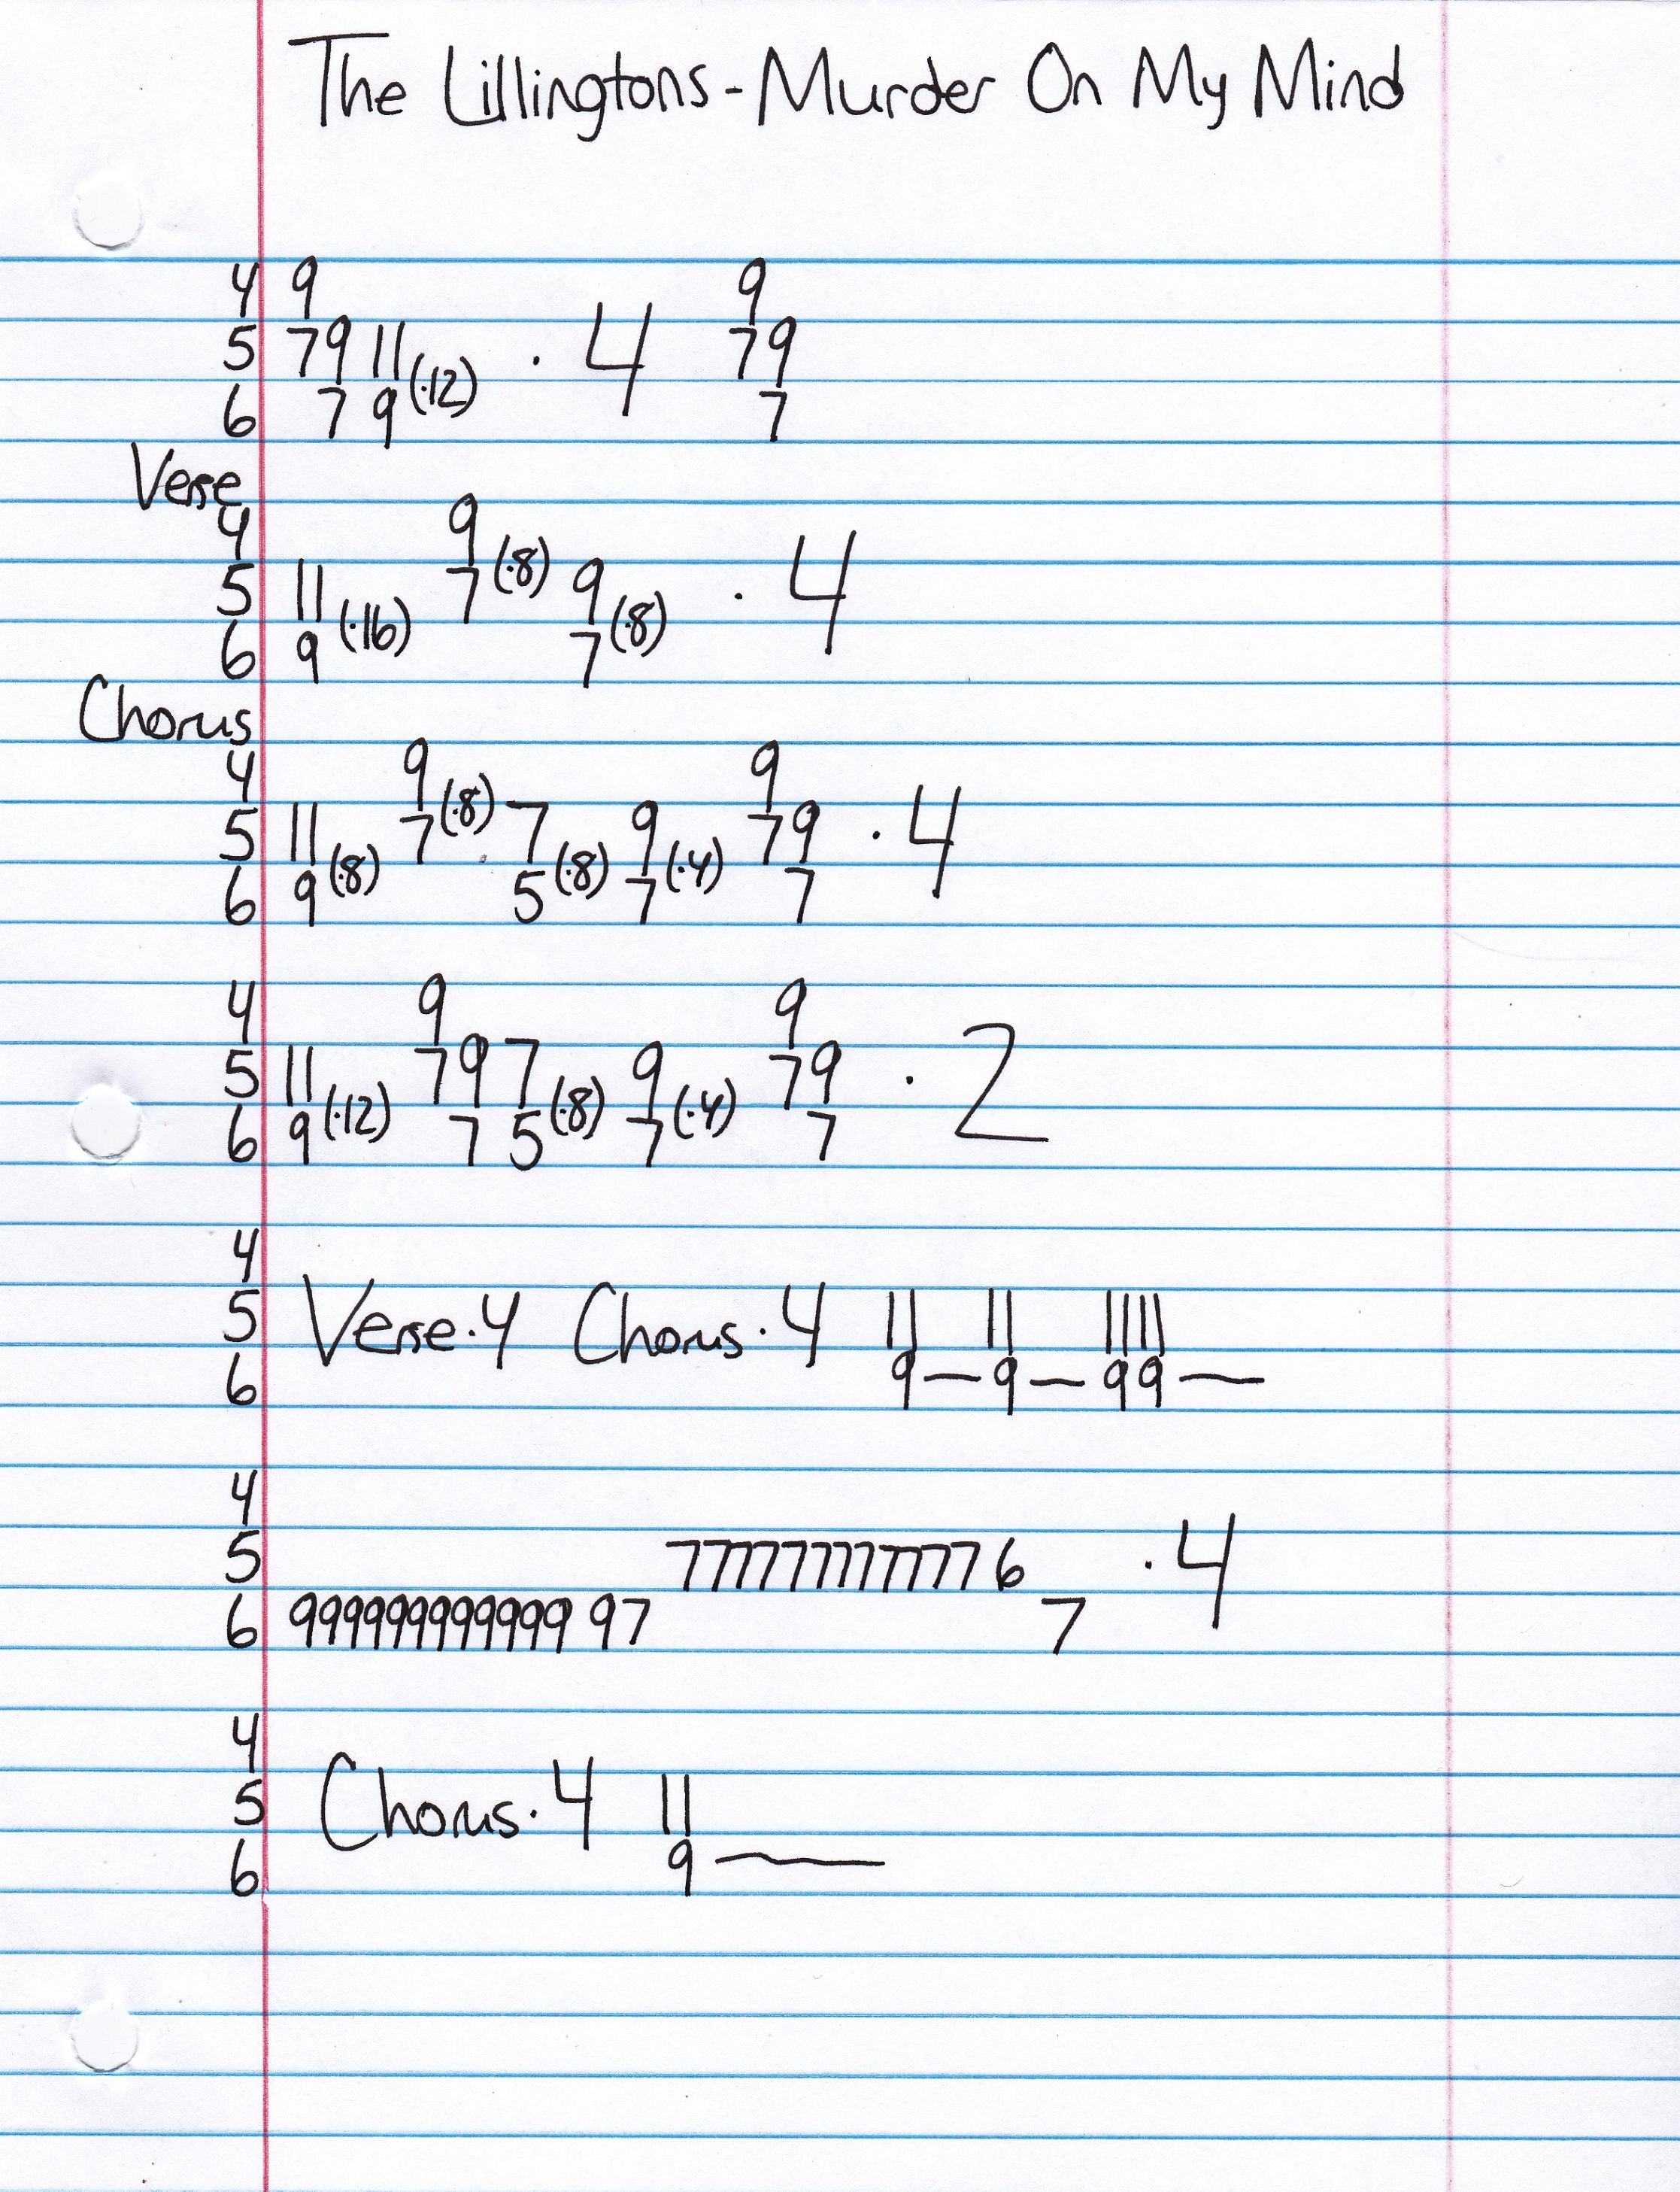 The Lillingtons - Murder On My Mind
4 9 9
5 79 11 · 4 79
6 7 9 (·12) 7
Verse
4 9
5 11 7 (·8) 9 · 4
6 9 (·16) 7 (·8)
Chorus
4 9 9
5 11 7 (·8) 7 9 79 · 4
6 9 (·8) 5 (·8) 7 (·4) 7
4 9 9
5 11 79 7 9 79 · 2
6 9 (·12) 7 5 (·8) 7 (·4) 7
4
5 Verse · 4 Chorus · 4 11 11 1111
6 9 — 9 — 99 —
4
5 777777777777 6 · 4
6 999999999999 97 7
4
5 Chorus · 4 11
6 9 —